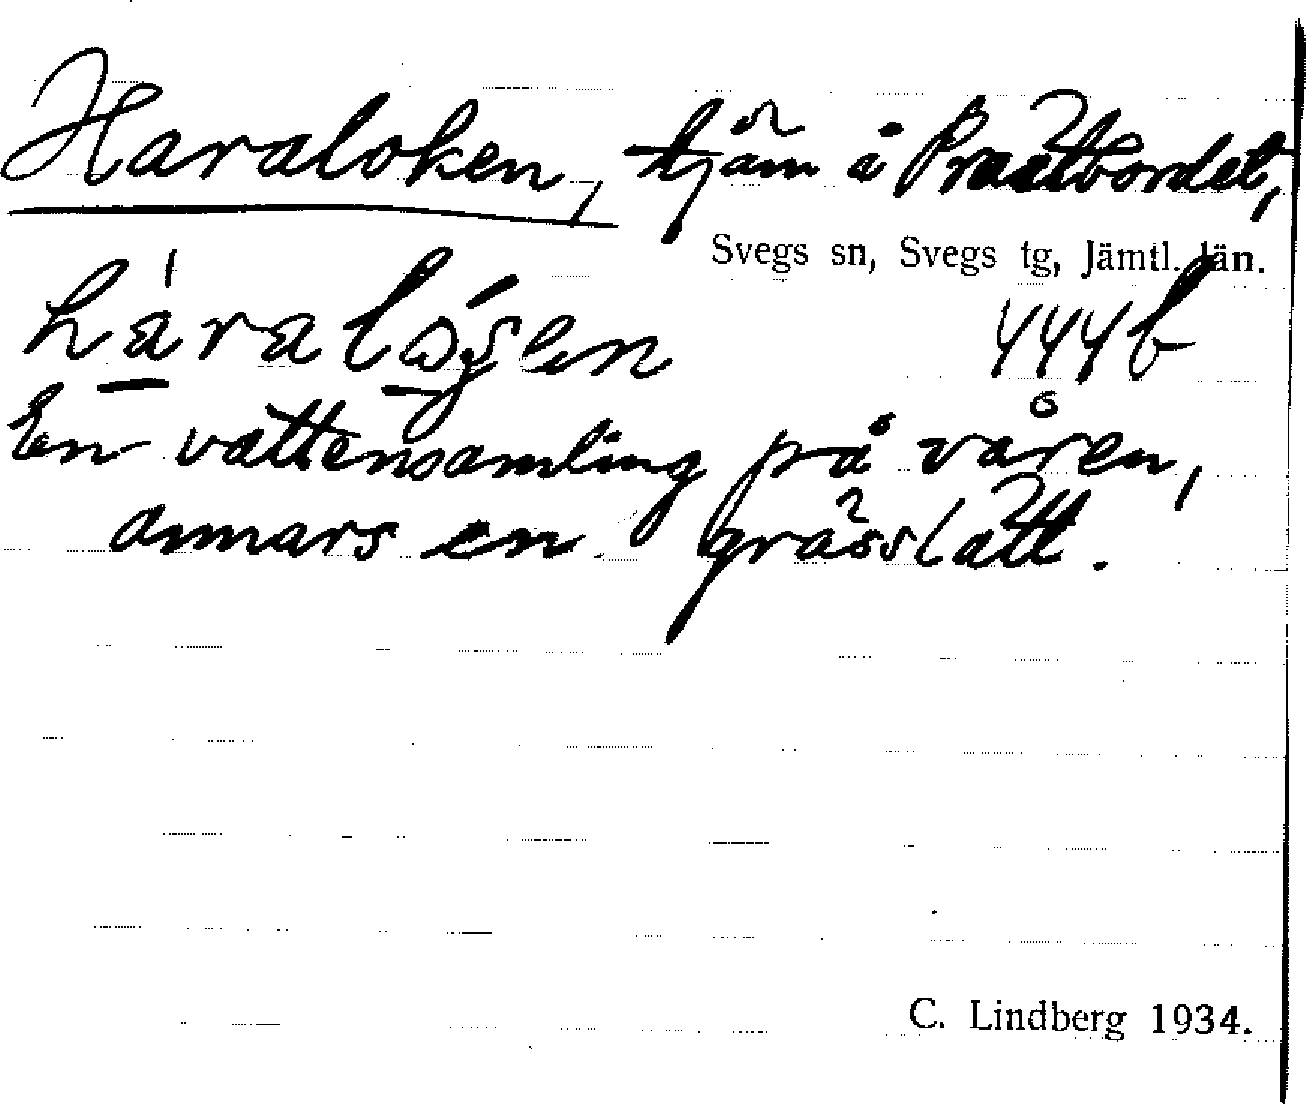 Haraloken, tjärn å Prästbordet,
Svegs sn, Svegs tg, Jämtl. län.
444 b
En vattensamling på våren,
annars en grässlätt.
C. Lindberg 1934.